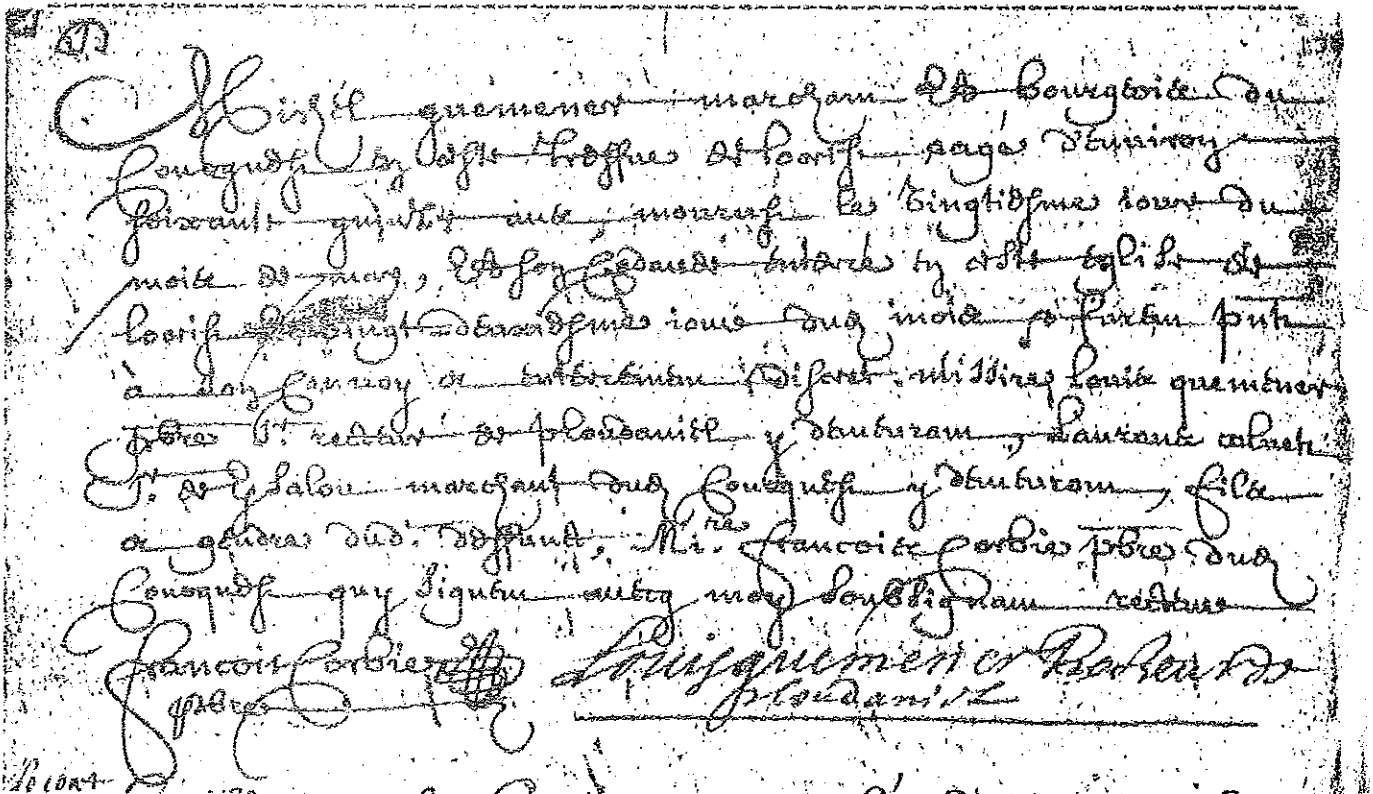 Michel quemener marchant et bourgeois du
Conquest en ceste treffve de locrist aagé d'environ
soixante quinze ans, mourust le vingtiesme iour du
mois de may, et son cadavre enterré en ceste eglise de
locrist le vingt deuxiesme iour dud mois furent pnts
à son convoy et enterrement discret missire louis quemener
pbre Sr. recteur de ploudaniel y demeurant, Laurans
Sr. de marchant dud Conquest y demeurant, fils
et gendre dud. deffunct, Mire. francois Corbie pbre dud
Conquest quy signent avecq moy soubsignant recteur
francois Corbie Louis quemener Recteur de
pbre ploudaniel